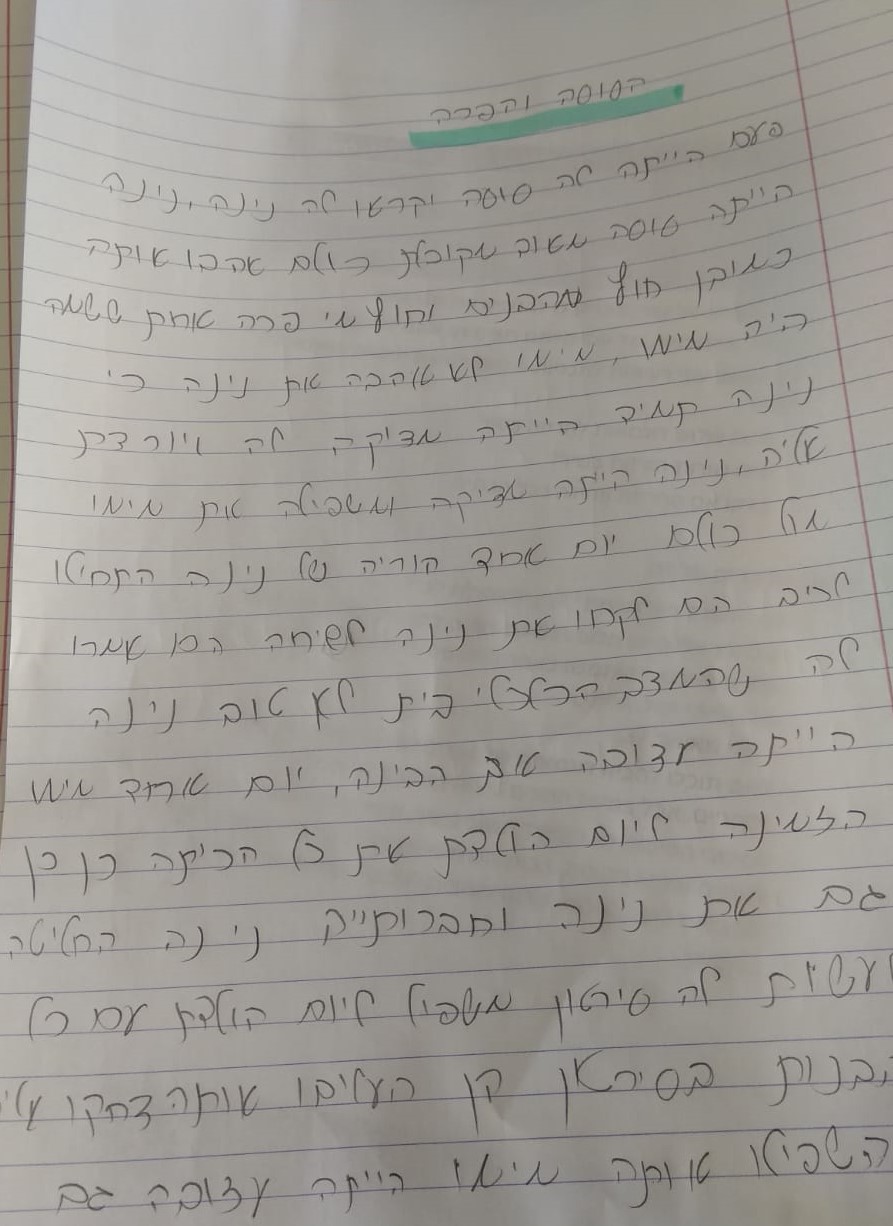 הסוסה והפרה
פעם הייתה לה סוסה וקראו לה נינה, נינה
הייתה סוסה מאוב מקובלת כולם אהבו אותה
כמובן חוץ מהבנים וחוץ מי פרה אחת ששמה
היה מימי, מימי לא אהבה את נינה כי
נינה תמיד הייתה מציקה לה ויורדת
אליה, נינה היתה מציקה ומשפילה את מימי
מול כולם יום אחד הוריה של נינה התחילו
לריב הם לקחו את נינה לשיחה הם אמרו
לה שהמצב הכלכלי בית לא טוב נינה
הייתה עצובה אבל הבינה, יום אחד מימי
הזמינה ליום הולדת את כל הכיתה כן כן
גם את נינה וחברותייה נינה החליטה
לעשות לה סירטון משפיל ליום הולדת עם כל
הבנות בסירטון הן העליבו אותה צחקו עליי
השפילו אותה מימי הייתה עצובה גם